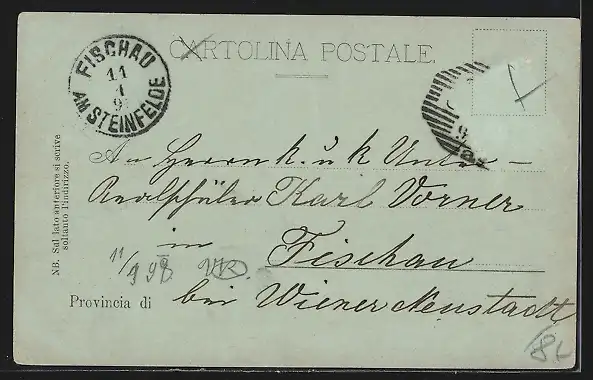 CARTOLINA POSTALE
FISCHAU
11
1
9
AM STEINFELDE
9
An Herrn k. u k Unter-
Realschüler Karl Vorner
in Fischau
11/1 98
Provincia di bei Wiener Neustadt
NB. Sul lato anteriore si scrive
soltanto l'indirizzo.